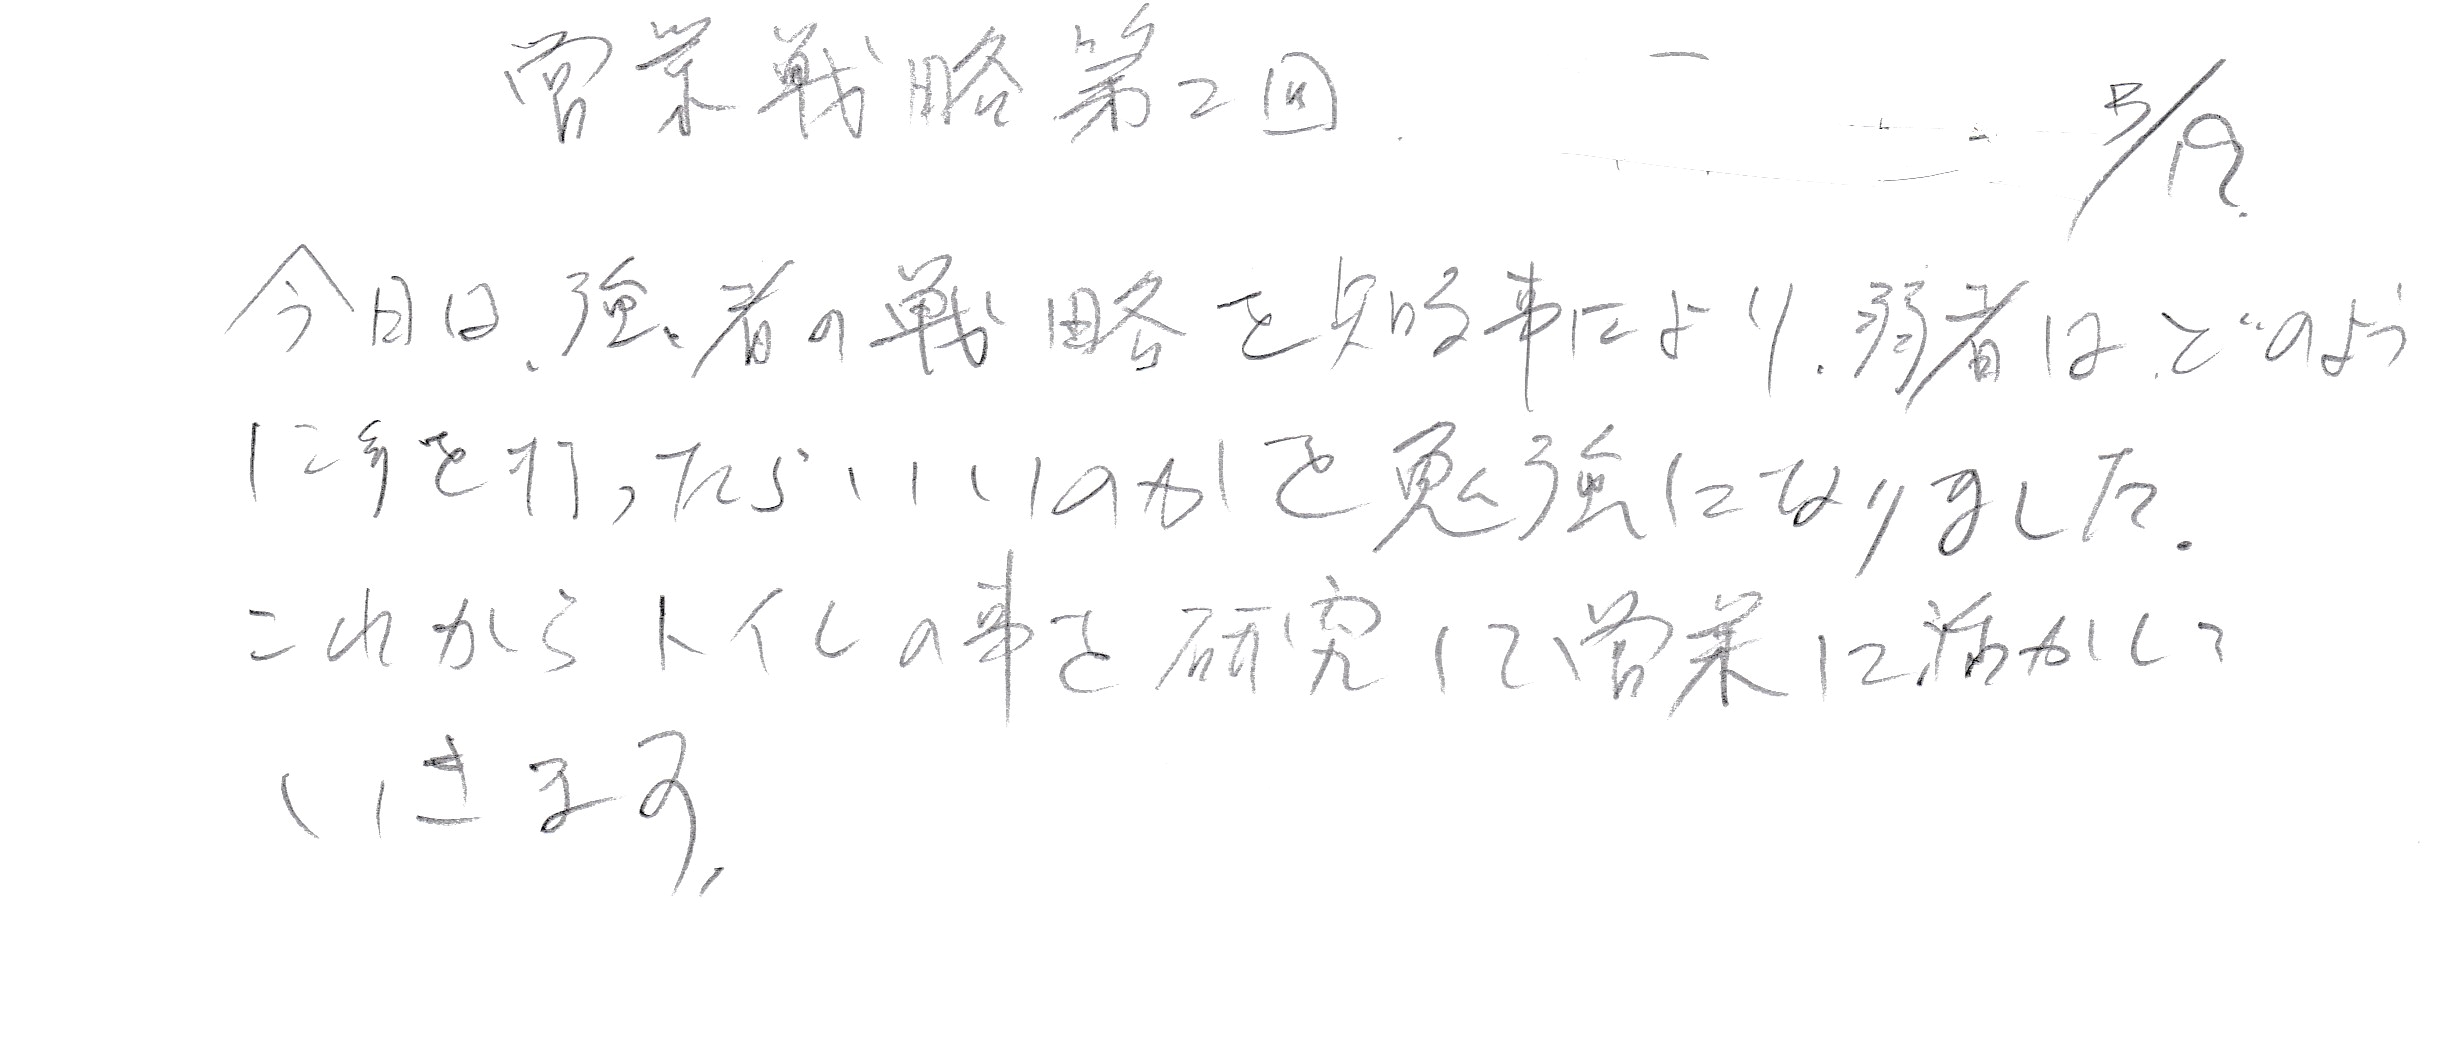 営業戦略第2回
5/19.
今日は、強者の戦略を知る事により、弱者は、どのよう
に手を打ったらいいのかを勉強になりました。
これからトイレの事を研究して営業に活かして
いきます。